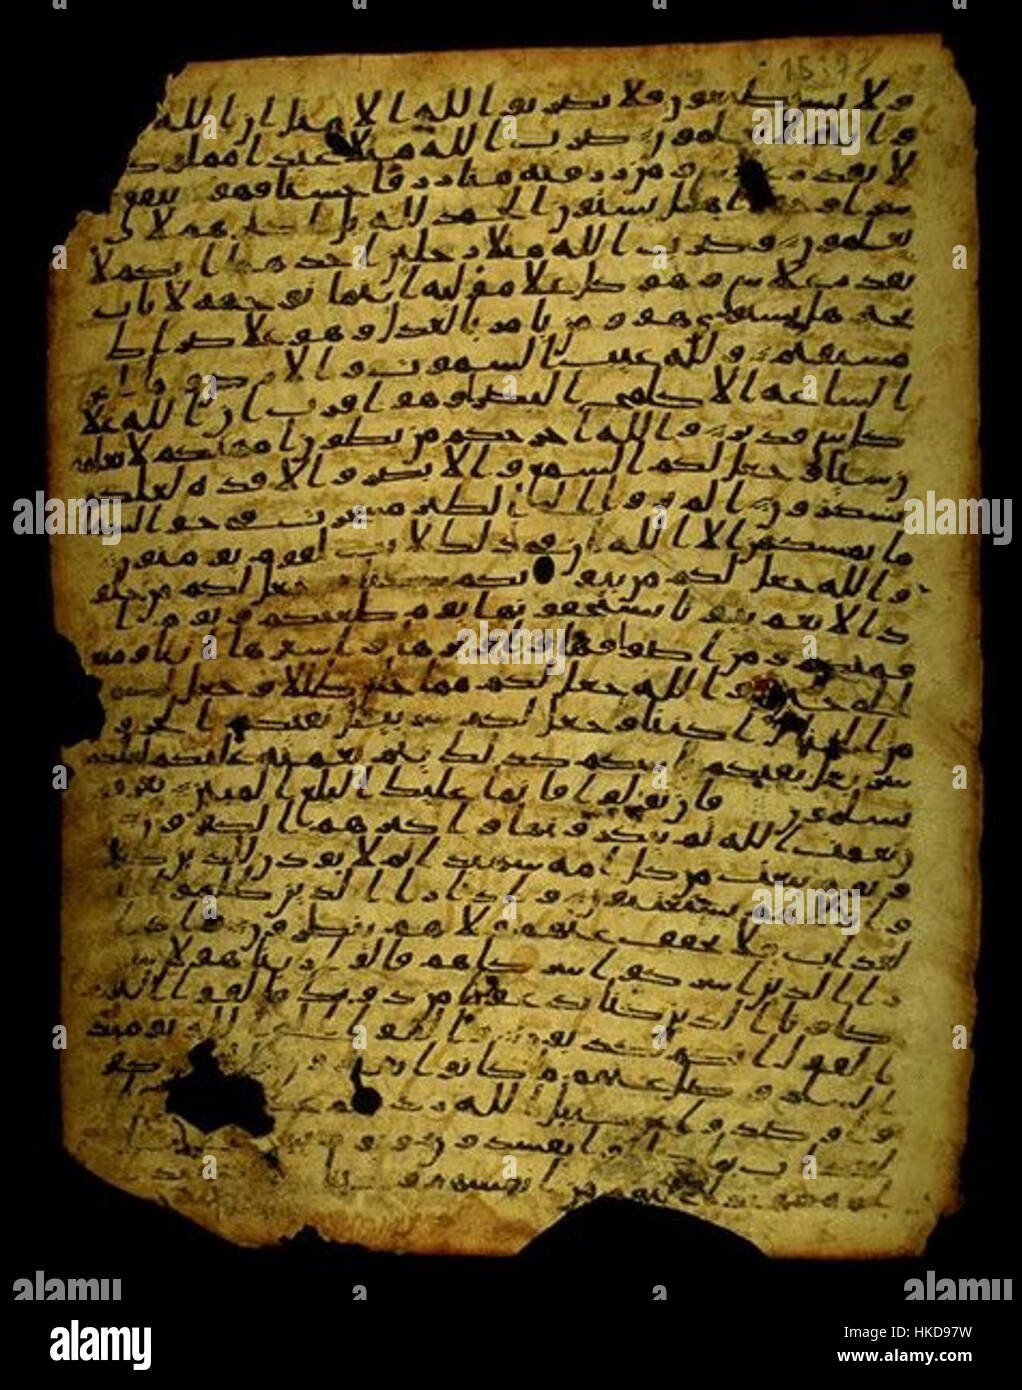 ولا يستطيعون فلا تضربوا لله الامثل ان الله
وانتم لا تعلمون ضرب الله مثلا عبدا مملوكا
لا يقدر على شى ومن رزقنه منا رزقا حسنا فهو ينفق
سرا وجهرا هل يستون الحمد لله بل اكثرهم لا
يعلمون وضرب الله مثلا رجلين احدهما ابكم لا
يقدر على شى وهو كل على موليه اينما يوجهه لا يات
بخير هل يستوى هو ومن يامر بالعدل وهو على صرط
مستقيم ولله غيب السموت والارض وما امر
الساعة الا كلمح البصر او هو اقرب ان الله على
كل شى قدير والله اخرجكم من بطون امهتكم لا تعلمون
شيا وجعل لكم السمع والابصر والافدة لعلكم
تشكرون الم يروا الى الطير مسخرت في جو السما
ما يمسكهن الا الله ان في ذلك لايت لقوم يومنون
والله جعل لكم من بيوتكم سكنا وجعل لكم من جلود
الانعم بيوتا تستخفونها يوم ظعنكم ويوم ا
قمتكم ومن اصوافها واوبرها واشعرها اثثا ومتعا
الى حين والله جعل لكم مما خلق ظللا وجعل لكم
من الجبال اكننا وجعل لكم سربيل تقيكم الحر و
سربيل تقيكم باسكم كذلك يتم نعمته عليكم لعلكم
تسلمون فان تولوا فانما عليك البلغ المبين يعرفون
نعمت الله ثم ينكرونها واكثرهم الكفرون
ويوم نبعث من كل امة شهيدا ثم لا يوذن للذين كفروا
ولا هم يستعتبون واذا را الذين ظلموا ا
لعذاب فلا يخفف عنهم ولا هم ينظرون واذا ر
ا الذين اشركوا شركاهم قالوا ربنا هولا شر
كاونا الذين كنا ندعوا من دونك فالقوا اليهم
القول انكم لكذبون والقوا الى الله يومئذ
السلم وضل عنهم ما كانوا يفترون الذين كفر
وا وصدوا عن سبيل الله زدنهم
العذاب بما كانوا يفسدون ويوم
عليهم من انفسهم
alamy
Image ID: HKD97W
www.alamy.com